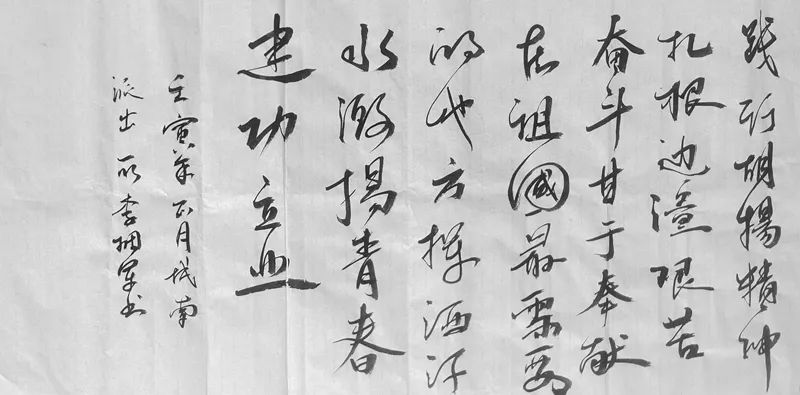 践行胡楊精神
扎根边潼艰苦
奋斗甘于奉献
在祖國最需要
的地方挥洒汗
水激揚青春
建功立业
壬寅年正月城南
派出所李拥军书